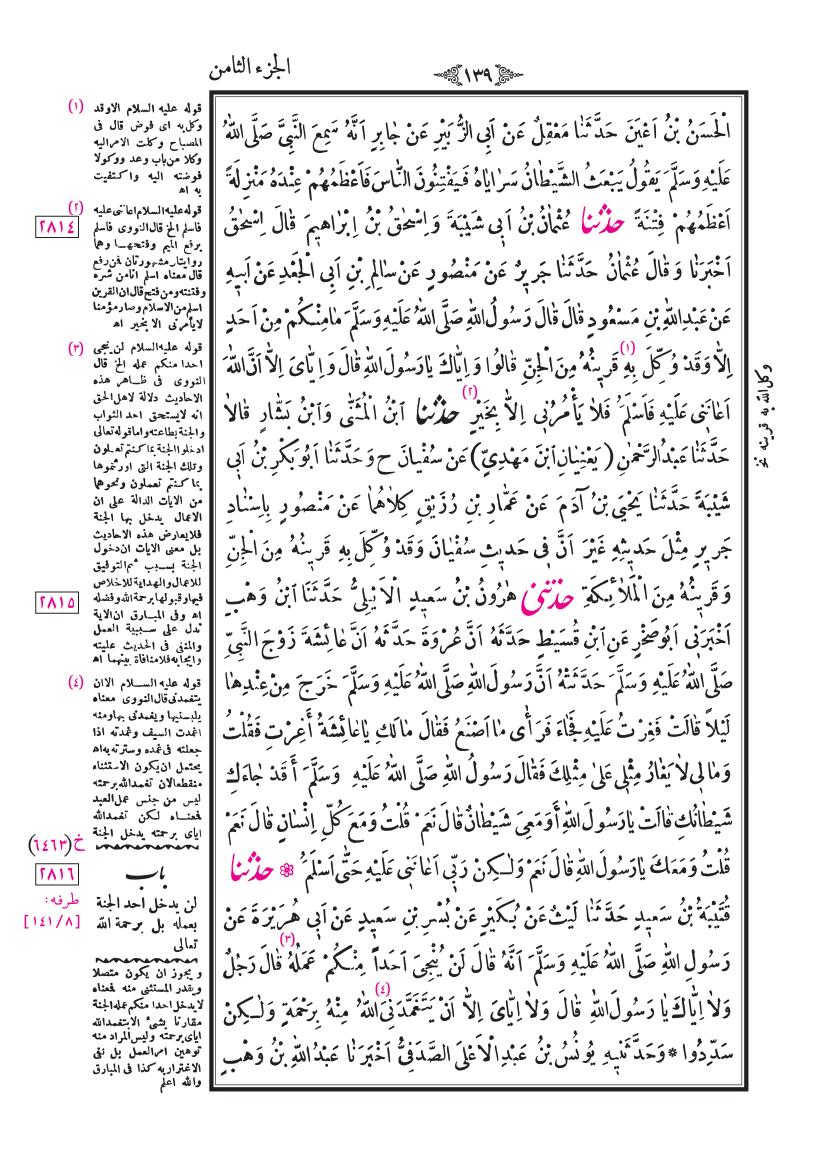 ١٣٩
الجزء الثامن
الْحَسَنُ بْنُ اَعْيَنَ حَدَّثَنَا مَعْقِلٌ عَنْ اَبِى الزُّبَيْرِ عَنْ جَابِرٍ اَنَّهُ سَمِعَ النَّبِىَّ صَلَّى اللهُ
عَلَيْهِ وَسَلَّمَ يَقُولُ يَبْعَثُ الشَّيْطَانُ سَرَايَاهُ فَيَفْتِنُونَ النَّاسَ فَاَعْظَمُهُمْ عِنْدَهُ مَنْزِلَةً
اَعْظَمُهُمْ فِتْنَةً حَدَّثَنَا عُثْمَانُ بْنُ اَبِى شَيْبَةَ وَاِسْحٰقُ بْنُ اِبْرَاهِيمَ قَالَ اِسْحٰقُ
اَخْبَرَنَا وَقَالَ عُثْمَانُ حَدَّثَنَا جَرِيرٌ عَنْ مَنْصُورٍ عَنْ سَالِمِ بْنِ اَبِى الْجَعْدِ عَنْ اَبِيهِ
عَنْ عَبْدِ اللهِ بْنِ مَسْعُودٍ قَالَ قَالَ رَسُولُ اللهِ صَلَّى اللهُ عَلَيْهِ وَسَلَّمَ مَا مِنْكُمْ مِنْ اَحَدٍ
اِلاَّ وَقَدْ وُكِّلَ بِهِ قَرِينُهُ مِنَ الْجِنِّ (١) قَالُوا وَاِيَّاكَ يَا رَسُولَ اللهِ قَالَ وَاِيَّاىَ اِلاَّ اَنَّ اللهَ
اَعَانَنِى عَلَيْهِ فَاَسْلَمَ فَلاَ يَأْمُرُنِى اِلاَّ بِخَيْرٍ (٢) حَدَّثَنَا ابْنُ الْمُثَنَّى وَابْنُ بَشَّارٍ قَالاَ
حَدَّثَنَا عَبْدُ الرَّحْمٰنِ (يَعْنِيَانِ ابْنَ مَهْدِىٍّ) عَنْ سُفْيَانَ ح وَحَدَّثَنَا اَبُو بَكْرِ بْنُ اَبِى
شَيْبَةَ حَدَّثَنَا يَحْيَى بْنُ آدَمَ عَنْ عَمَّارِ بْنِ رُزَيْقٍ كِلاَهُمَا عَنْ مَنْصُورٍ بِاِسْنَادِ
جَرِيرٍ مِثْلَ حَدِيثِهِ غَيْرَ اَنَّ فِى حَدِيثِ سُفْيَانَ وَقَدْ وُكِّلَ بِهِ قَرِينُهُ مِنَ الْجِنِّ
وَقَرِينُهُ مِنَ الْمَلاَئِكَةِ حَدَّثَنِى هٰرُونُ بْنُ سَعِيدٍ الْاَيْلِىُّ حَدَّثَنَا ابْنُ وَهْبٍ
اَخْبَرَنِى اَبُو صَخْرٍ عَنِ ابْنِ قُسَيْطٍ حَدَّثَهُ اَنَّ عُرْوَةَ حَدَّثَهُ اَنَّ عَائِشَةَ زَوْجَ النَّبِىِّ
صَلَّى اللهُ عَلَيْهِ وَسَلَّمَ حَدَّثَتْهُ اَنَّ رَسُولَ اللهِ صَلَّى اللهُ عَلَيْهِ وَسَلَّمَ خَرَجَ مِنْ عِنْدِهَا
لَيْلاً قَالَتْ فَغِرْتُ عَلَيْهِ فَجَاءَ فَرَأَى مَا اَصْنَعُ فَقَالَ مَالَكِ يَا عَائِشَةُ أَغِرْتِ فَقُلْتُ
وَمَالِى لاَ يَغَارُ مِثْلِى عَلَى مِثْلِكَ فَقَالَ رَسُولُ اللهِ صَلَّى اللهُ عَلَيْهِ وَسَلَّمَ أَقَدْ جَاءَكِ
شَيْطَانُكِ قَالَتْ يَا رَسُولَ اللهِ أَوَمَعِىَ شَيْطَانٌ قَالَ نَعَمْ قُلْتُ وَمَعَ كُلِّ اِنْسَانٍ قَالَ نَعَمْ
قُلْتُ وَمَعَكَ يَا رَسُولَ اللهِ قَالَ نَعَمْ وَلٰكِنْ رَبِّى اَعَانَنِى عَلَيْهِ حَتَّى اَسْلَمَ ❁ حَدَّثَنَا
قُتَيْبَةُ بْنُ سَعِيدٍ حَدَّثَنَا لَيْثٌ عَنْ بُكَيْرٍ عَنْ بُسْرِ بْنِ سَعِيدٍ عَنْ اَبِى هُرَيْرَةَ عَنْ
رَسُولِ اللهِ صَلَّى اللهُ عَلَيْهِ وَسَلَّمَ اَنَّهُ قَالَ لَنْ يُنْجِىَ اَحَداً مِنْكُمْ عَمَلُهُ (٣) قَالَ رَجُلٌ
وَلاَ اِيَّاكَ يَا رَسُولَ اللهِ قَالَ وَلاَ اِيَّاىَ اِلاَّ اَنْ يَتَغَمَّدَنِىَ اللهُ (٤) مِنْهُ بِرَحْمَةٍ وَلٰكِنْ
سَدِّدُوا * وَحَدَّثَنِيهِ يُونُسُ بْنُ عَبْدِ الْاَعْلَى الصَّدَفِىُّ اَخْبَرَنَا عَبْدُ اللهِ بْنُ وَهْبٍ
وكل الله به قرينه نخ
(١) قوله عليه السلام الا وقد
وكل به اى فوض قال فى
المصباح وكلت الامر اليه
وكلا من باب وعد ووكولا
فوضته اليه واكتفيت
به اه
(٢) قوله عليه السلام اعاننى عليه
فاسلم الخ قال النووى فاسلم
برفع الميم وفتحها وهما
روايتان مشهورتان فمن رفع
قال معناه اسلم انا من شره
وفتنته ومن فتح قال ان القرين
اسلم من الاسلام وصار مؤمنا
لا يأمرنى الا بخير اه
٢٨١٤
(٣) قوله عليه السلام لن ينجى
احدا منكم عمله الخ قال
النووى فى ظاهر هذه
الاحاديث دلالة لاهل الحق
انه لا يستحق احد الثواب
والجنة بطاعته واما قوله تعالى
ادخلوا الجنة بما كنتم تعملون
وتلك الجنة التى اورثتموها
بما كنتم تعملون ونحوهما
من الايات الدالة على ان
الاعمال يدخل بها الجنة
فلا يعارض هذه الاحاديث
بل معنى الايات ان دخول
الجنة بسبب ثم التوفيق
للاعمال والهداية للاخلاص
فيها وقبولها برحمة الله وفضله
اه وفى المبارق ان الاية
تدل على سببية العمل
والمنفى فى الحديث عليته
وايجابه فلا منافاة بينهما اه
٢٨١٥
(٤) قوله عليه السلام الا ان
يتغمدنى قال النووى معناه
يلبسنيها ويغمدنى بها ومنه
اغمدت السيف وغمدته اذا
جعلته فى غمده وسترته به اه
يحتمل ان يكون الاستثناء
منقطعا لان تغمد الله برحمته
ليس من جنس عمل العبد
فمعناه لكن تغمد الله
اياى برحمته يدخل الجنة
خ (٦٤٦٣)
٢٨١٦
طرفه:
[٨/١٤١]
باب
لن يدخل احد الجنة
بعمله بل برحمة الله
تعالى
ويجوز ان يكون متصلا
ويقدر المستثنى منه فمعناه
لا يدخل احدا منكم عمله الجنة
مقارنا بشئ الا بتغمد الله
اياى برحمته وليس المراد منه
توهين امر العمل بل نفى
الاغترار به كذا فى المبارق
والله اعلم